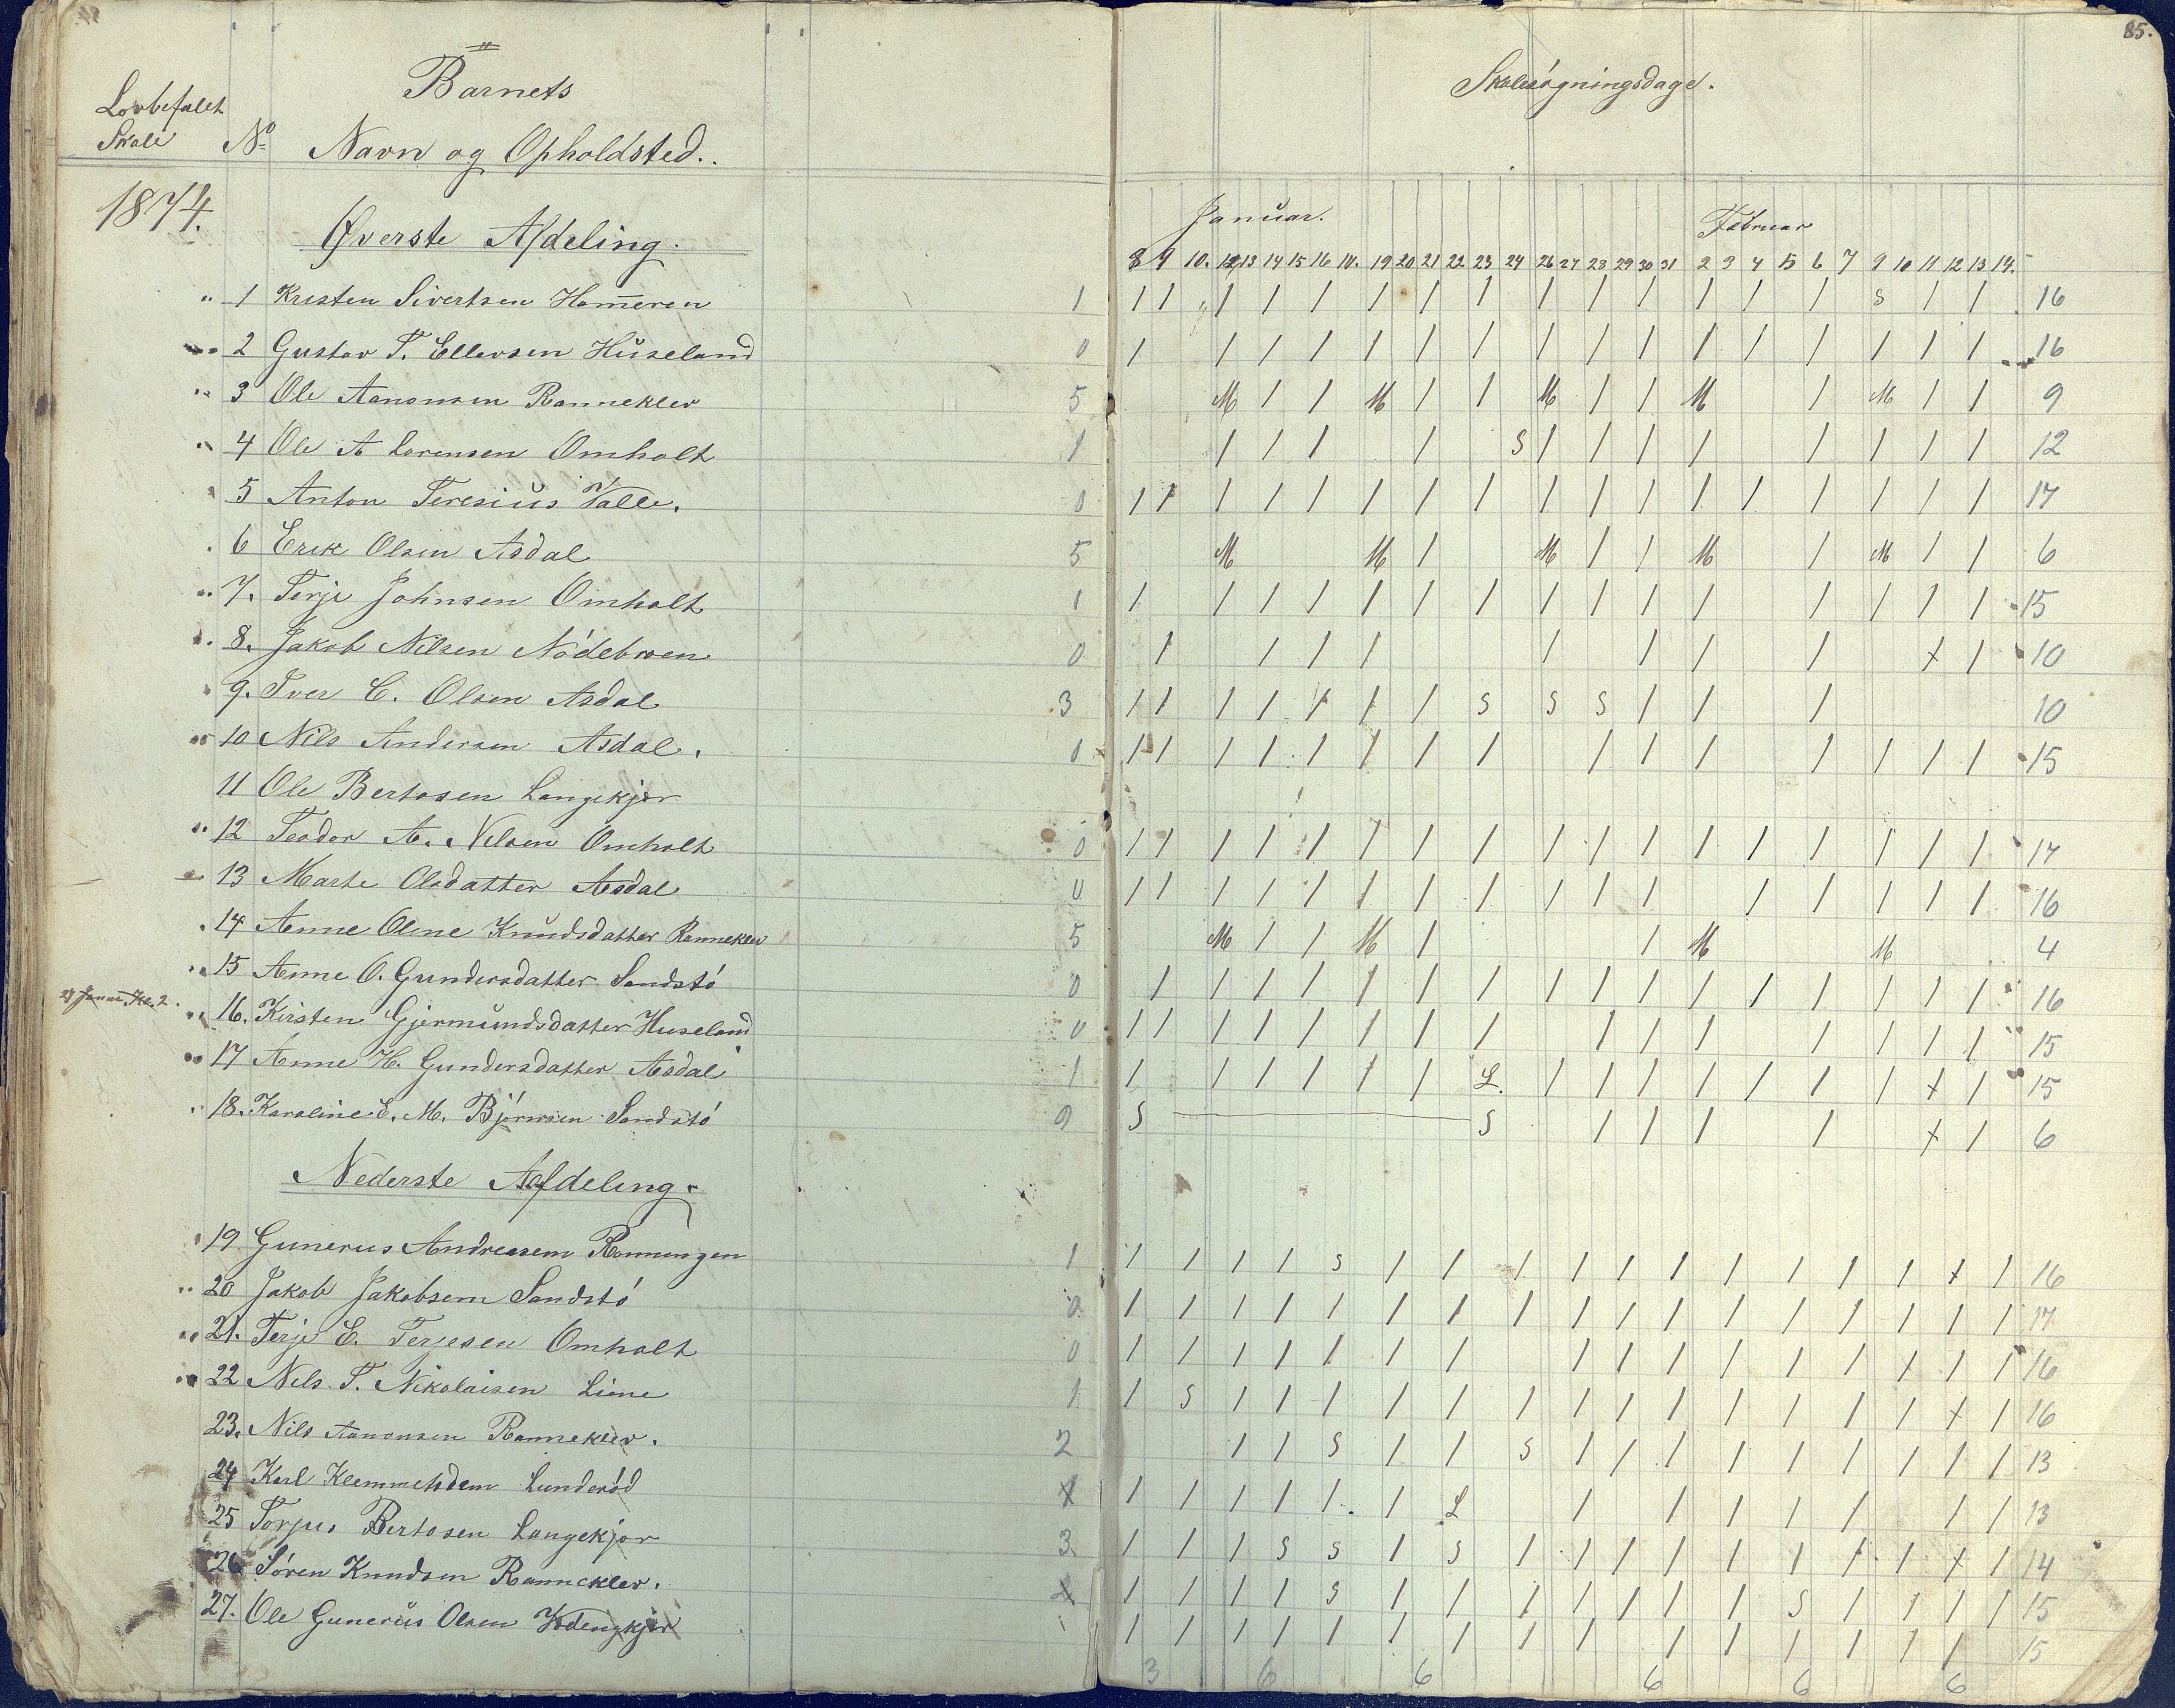 85.
II
Lovbefalet
Skole
No
Barnets
Navn og Opholdsted..
Skolesøgningsdage.
1874.
Øverste Afdeling.
Januar.
Februar
8 9 10. 12 13 14 15 16 19 20 21 22 23 24 26 27 28 29 30 31 2 3 4 5 6 7 9 10 11 12 13 14.
1 Kristen Sivertsen Homeren 1 / / / / / / / / / / / / / / s / / 16
2 Gustav T. Ellevsen Huseland 0 / / / / / / / / / / / / / / / / 16
3 Ole Aanonsen Ranneklev 5 M / / M / / M / / M / M / / 9
4 Ole A Lorensen Omholt 1 / / / / S / / / / / / / / 12
5 Anton Teresius Valle. 0 / / / / / / / / / / / / / / / / / 17
6 Erik Olsen Asdal 5 M M / M / / M / M / / 6
7. Terje Johnsen Omholt 1 / / / / / / / / / / / / / / / 15
8. Jakob Nilsen Nödebroen 0 / / / / / / / / x / 10
9. Iver C. Olsen Asdal 3 / / / / / / / S S S / / / 10
10 Nils Andersen Asdal. 0 / / / / / / / / / / / / / / / 15
11 Ole Bertosen Langekjær
12 Teodor A. Nilsen Omholt 0 / / / / / / / / / / / / / / / / / 17
13 Marte Olsdatter Asdal 0 / / / / / / / / / / / / / / / / 16
14 Anne Oline Knudsdatter Ranneklev 5 M / / M / / M M 4
15 Anne O. Gundersdatter Sandstö 0 / / / / / / / / / / / / / / / / 16
16. Kirsten Gjermundsdatter Huseland 0 / / / / / / / / / / / / / / / 15
17 Anne H. Gundersdatter Asdal 1 / / / / / / L. / / / / / / / x / 15
18. Karoline E. M. Björnsen Sandstö 9 S S / / / / x / 6
Nederste Afdeling.
19 Gunerus Andreasen Ronningen 1 / / / / s / / / / / / / / / / x / 16
20 Jakob Jakobsen Sandstö 0 / / / / / / / / / / / / / / / / / 17
21. Terje E. Terjesen Omholt 0 / / / / / / / / / / / / / / / / 16
22 Nils T. Nikolaisen Liene 1 / S / / / / / / / / / / / / / x / 16
23. Nils Aanonsen Ranneklev. 2 / / S / / S / / / / / / / / / 13
24 Karl Klemmetsdem Lunderöd 1 / / / / / / L / / / / / / / 13
25 Torjus Bertosen Langekjær 3 / / / S S / S / / / / / / / / x / 14
26 Sören Knudsen Ranneklev. 2 / / / / S / / / / / / / S / / / / 15
27. Ole Gunerus Olsen / / / / / / / / / / / / / / / 15
3 6 6 6 6 6